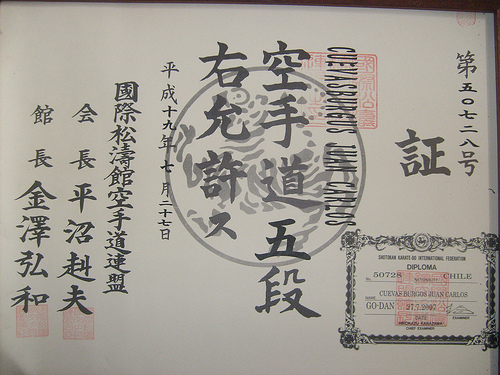 第五〇七二八号
証
CUEVAS BURGOS JUAN CARLOS
空手道五段
右允許ス
平成十九年七月二十七日
國際松濤館空手道連盟
会長平沼赳夫
館長金澤弘和
SHOTOKAN KARATE-DO INTERNATIONAL FEDERATION
DIPLOMA
No. 50728 CHILE
NAME CUEVAS BURGOS JUAN CARLOS
GO-DAN 27.7.2007
DATE
EXAMINER
HIROKAZU KANAZAWA
CHIEF EXAMINER